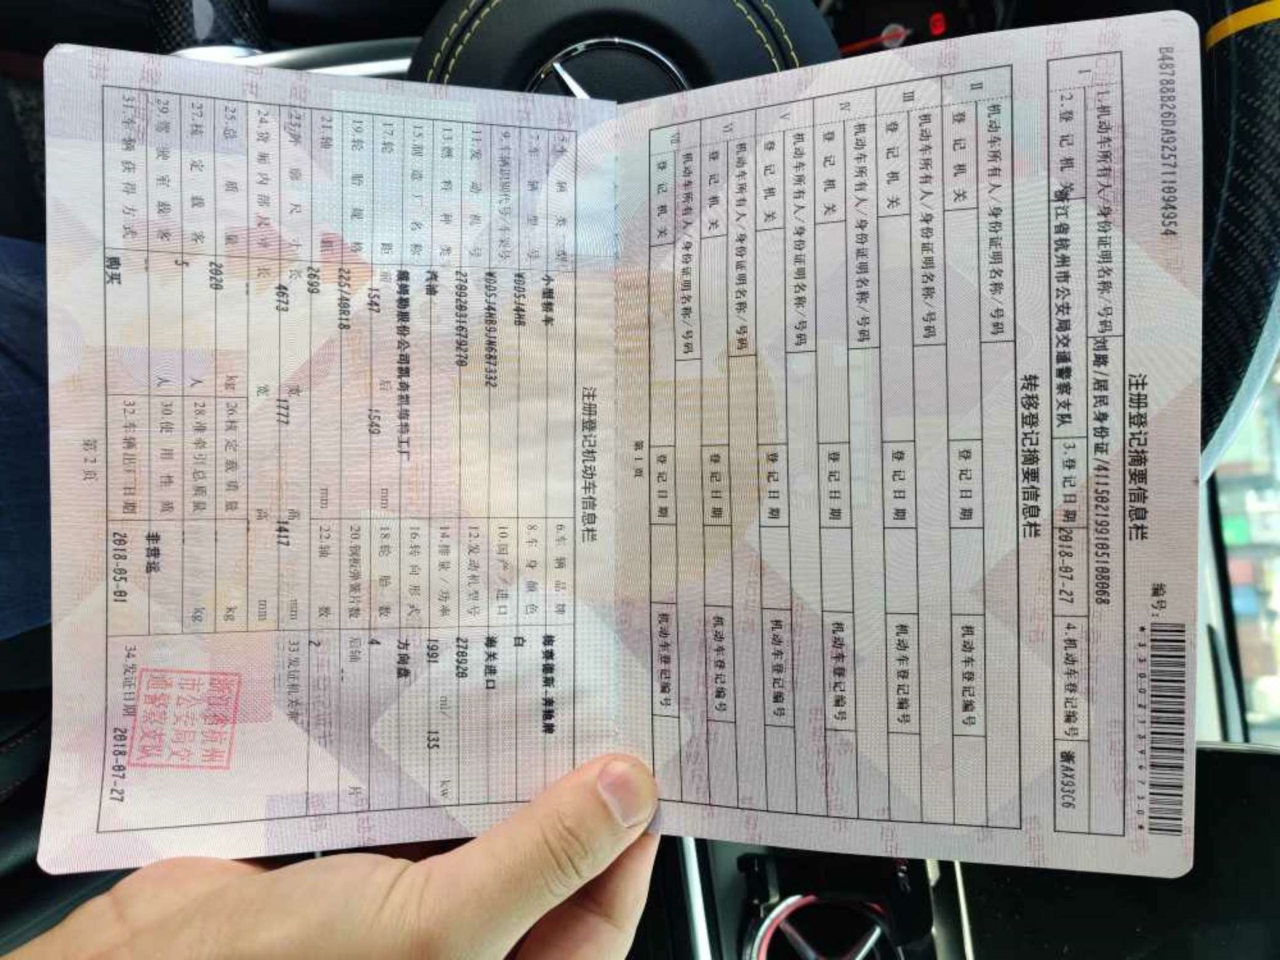 B48788B26DA925711094954
编号:
*3300213946730*
注册登记摘要信息栏
I
1.机动车所有人/身份证明名称/号码 刘璐/居民身份证/411502199105108068
2.登记机关 浙江省杭州市公安局交通警察支队 3.登记日期 2018-07-27 4.机动车登记编号 浙AX93C6
转移登记摘要信息栏
II
机动车所有人/身份证明名称/号码
登记机关 登记日期 机动车登记编号
III
机动车所有人/身份证明名称/号码
登记机关 登记日期 机动车登记编号
IV
机动车所有人/身份证明名称/号码
登记机关 登记日期 机动车登记编号
V
机动车所有人/身份证明名称/号码
登记机关 登记日期 机动车登记编号
VI
机动车所有人/身份证明名称/号码
登记机关 登记日期 机动车登记编号
VII
机动车所有人/身份证明名称/号码
登记机关 登记日期 机动车登记编号
第1页
注册登记机动车信息栏
5.车辆类型 小型轿车 6.车辆品牌 梅赛德斯-奔驰牌
7.车辆型号 WDD5J4HB 8.车身颜色 白
9.车辆识别代号/车架号 WDD5J4HB9JN687332 10.国产/进口 海关进口
11.发动机号 27092031679270 12.发动机型号 270920
13.燃料种类 汽油 14.排量/功率 1991 ml/ 135 kw
15.制造厂名称 16.转向形式 方向盘
17.轮距 前 1547 后 1549 mm 18.轮胎数 4
19.轮胎规格 225/40R18 20.钢板弹簧片数 后轴 -- 片
21.轴距 2699 mm 22.轴数 2
23.外廓尺寸 长 4673 宽 1777 高 1417 mm 33.发证机关章
24.货厢内部尺寸 长 宽 高 mm
25.总质量 2020 kg 26.核定载质量 kg
27.核定载客 5 人 28.准牵引总质量 kg
29.驾驶室载客 -- 人 30.使用性质 非营运
31.车辆获得方式 购买 32.车辆出厂日期 2018-05-01 34.发证日期 2018-07-27
浙江省杭州
市公安局交
通警察支队
第2页